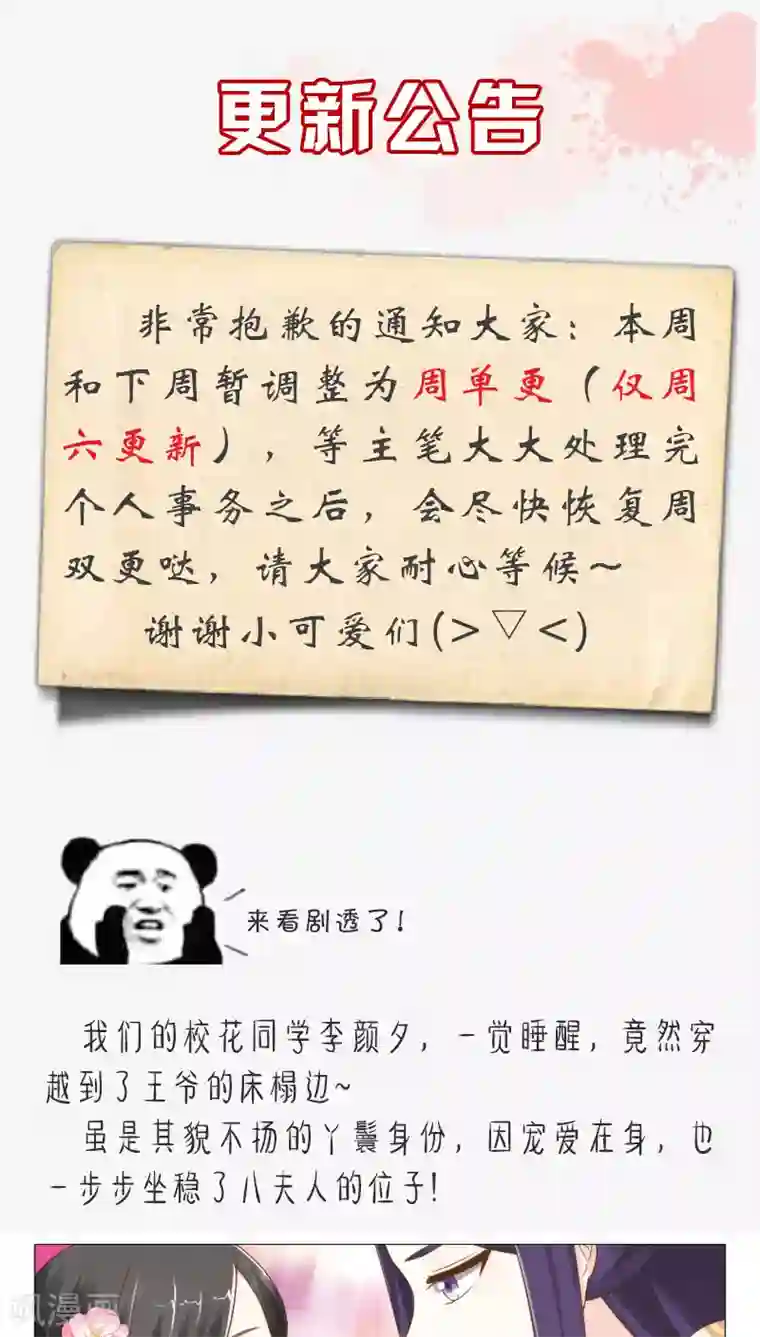 更新公告
非常抱歉的通知大家：本周
和下周暂调整为周单更（仅周
六更新），等主笔大大处理完
个人事务之后，会尽快恢复周
双更哒，请大家耐心等候～
谢谢小可爱们(>▽<)
来看剧透了!
我们的校花同学李颜夕，一觉睡醒，竟然穿
越到了王爷的床榻边~
虽是其貌不扬的丫鬟身份，因宠爱在身，也
一步步坐稳了八夫人的位子!
飒漫画